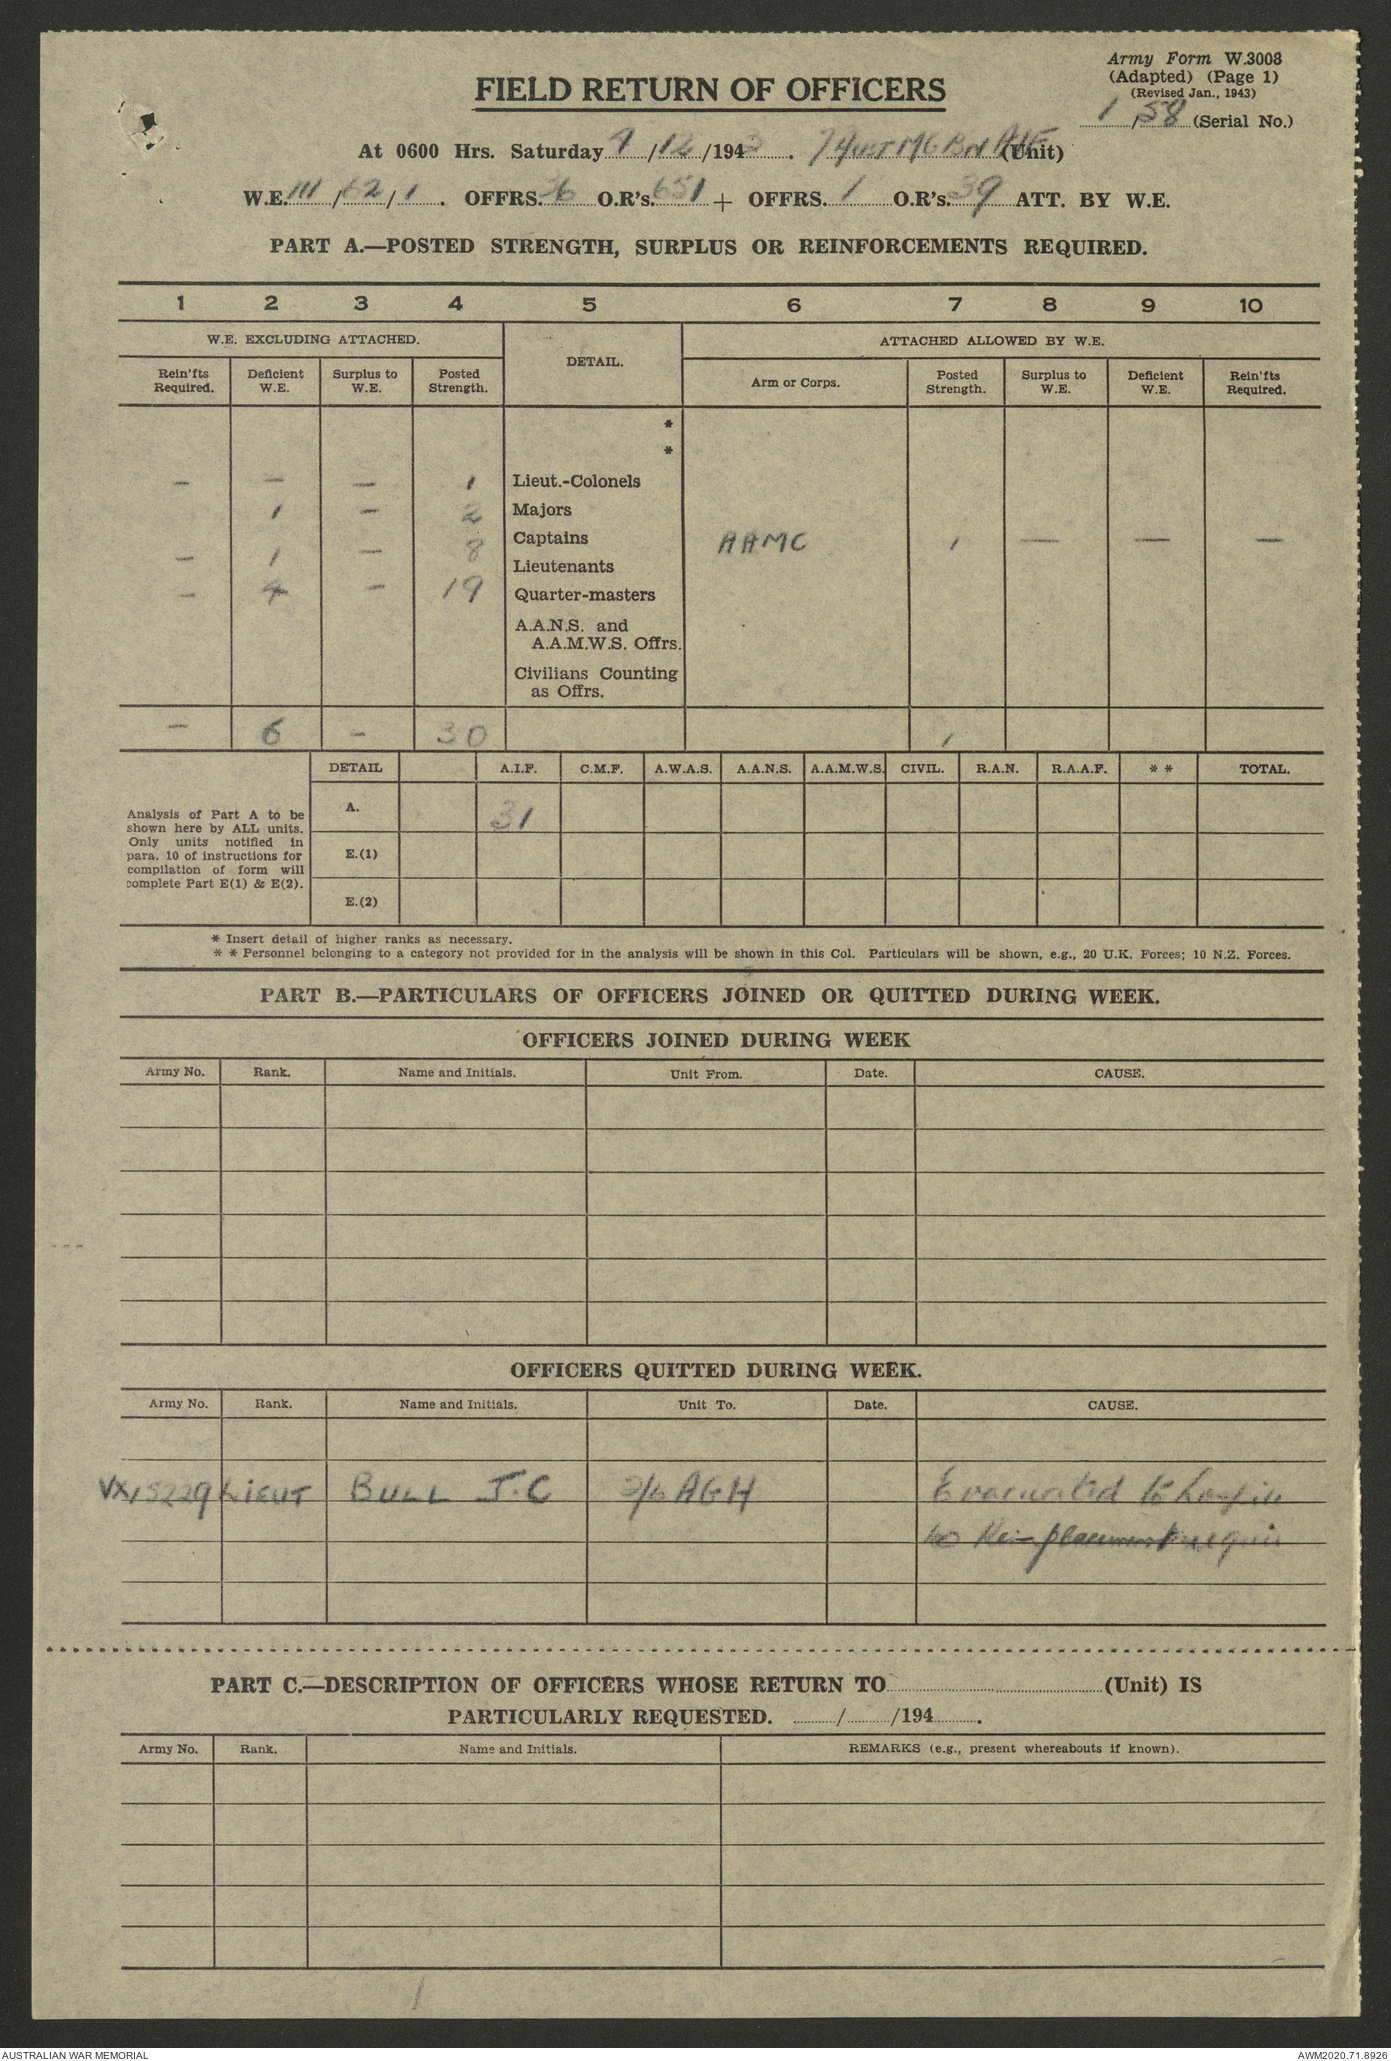 Army Form W.3008
(Adapted) (Page 1)
(Revised Jan., 1943)
1, 58 (Serial No.)
FIELD RETURN OF OFFICERS
At 0600 Hrs. Saturday 4/12/1943. 7 Aust MG Bn AIF (Unit)
W.E. III/62/1. OFFRS. 36 O.R's. 651 + OFFRS. 1 O.R's. 39 ATT. BY W.E.
PART A.—POSTED STRENGTH, SURPLUS OR REINFORCEMENTS REQUIRED.
1 2 3 4 5 6 7 8 9 10
W.E. EXCLUDING ATTACHED. DETAIL. ATTACHED ALLOWED BY W.E.
Rein'fts Required. Deficient W.E. Surplus to W.E. Posted Strength. Arm or Corps. Posted Strength. Surplus to W.E. Deficient W.E. Rein'fts Required.
*
*
— — — 1 Lieut.-Colonels
1 — 2 Majors
— 1 — 8 Captains AAMC 1 — — —
Lieutenants
— 4 — 19 Quarter-masters
A.A.N.S. and
A.A.M.W.S. Offrs.
Civilians Counting
as Offrs.
— 6 — 30 1
DETAIL A.I.F. C.M.F. A.W.A.S. A.A.N.S. A.A.M.W.S. CIVIL. R.A.N. R.A.A.F. * * TOTAL.
Analysis of Part A to be
shown here by ALL units.
Only units notified in
para. 10 of instructions for
compilation of form will
complete Part E(1) & E(2).
A. 31
E.(1)
E.(2)
* Insert detail of higher ranks as necessary.
* * Personnel belonging to a category not provided for in the analysis will be shown in this Col. Particulars will be shown, e.g., 20 U.K. Forces; 10 N.Z. Forces.
PART B.—PARTICULARS OF OFFICERS JOINED OR QUITTED DURING WEEK.
OFFICERS JOINED DURING WEEK
Army No. Rank. Name and Initials. Unit From. Date. CAUSE.
OFFICERS QUITTED DURING WEEK.
Army No. Rank. Name and Initials. Unit To. Date. CAUSE.
VX15229 LIEUT BULL J.C 2/6 AGH Evacuated to
no
PART C.—DESCRIPTION OF OFFICERS WHOSE RETURN TO (Unit) IS
PARTICULARLY REQUESTED. / /194 .
Army No. Rank. Name and Initials. REMARKS (e.g., present whereabouts if known).
1
AUSTRALIAN WAR MEMORIAL AWM2020.71.8926